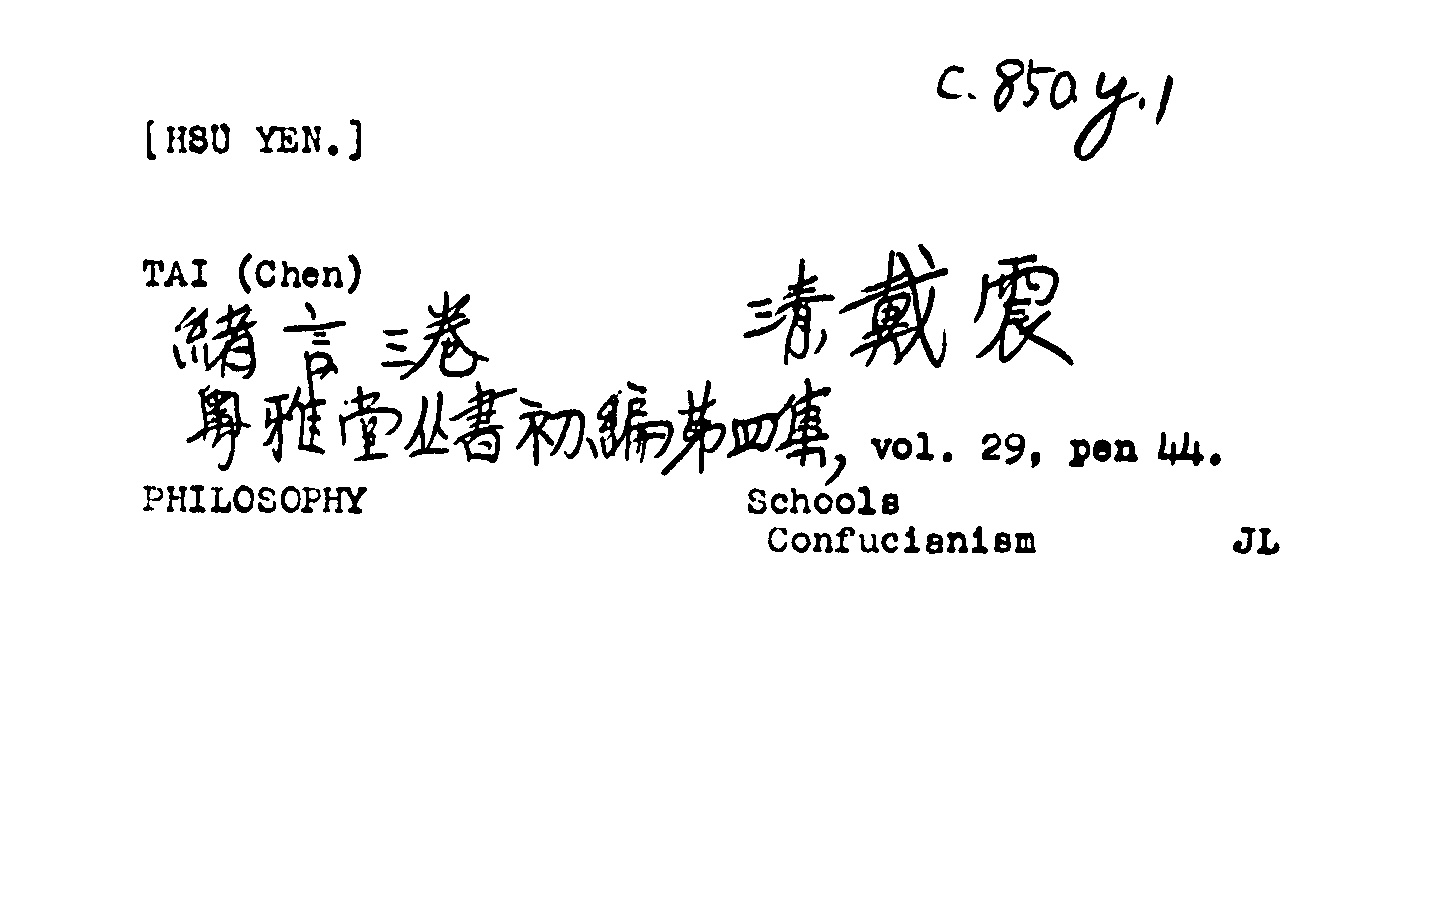 C. 850. y. 1
[HSÜ YEN.]
TAI (Chen) 清戴震
緒言三卷
粵雅堂丛書初編第四集, vol. 29, pen 44.
PHILOSOPHY Schools
Confucianism JL